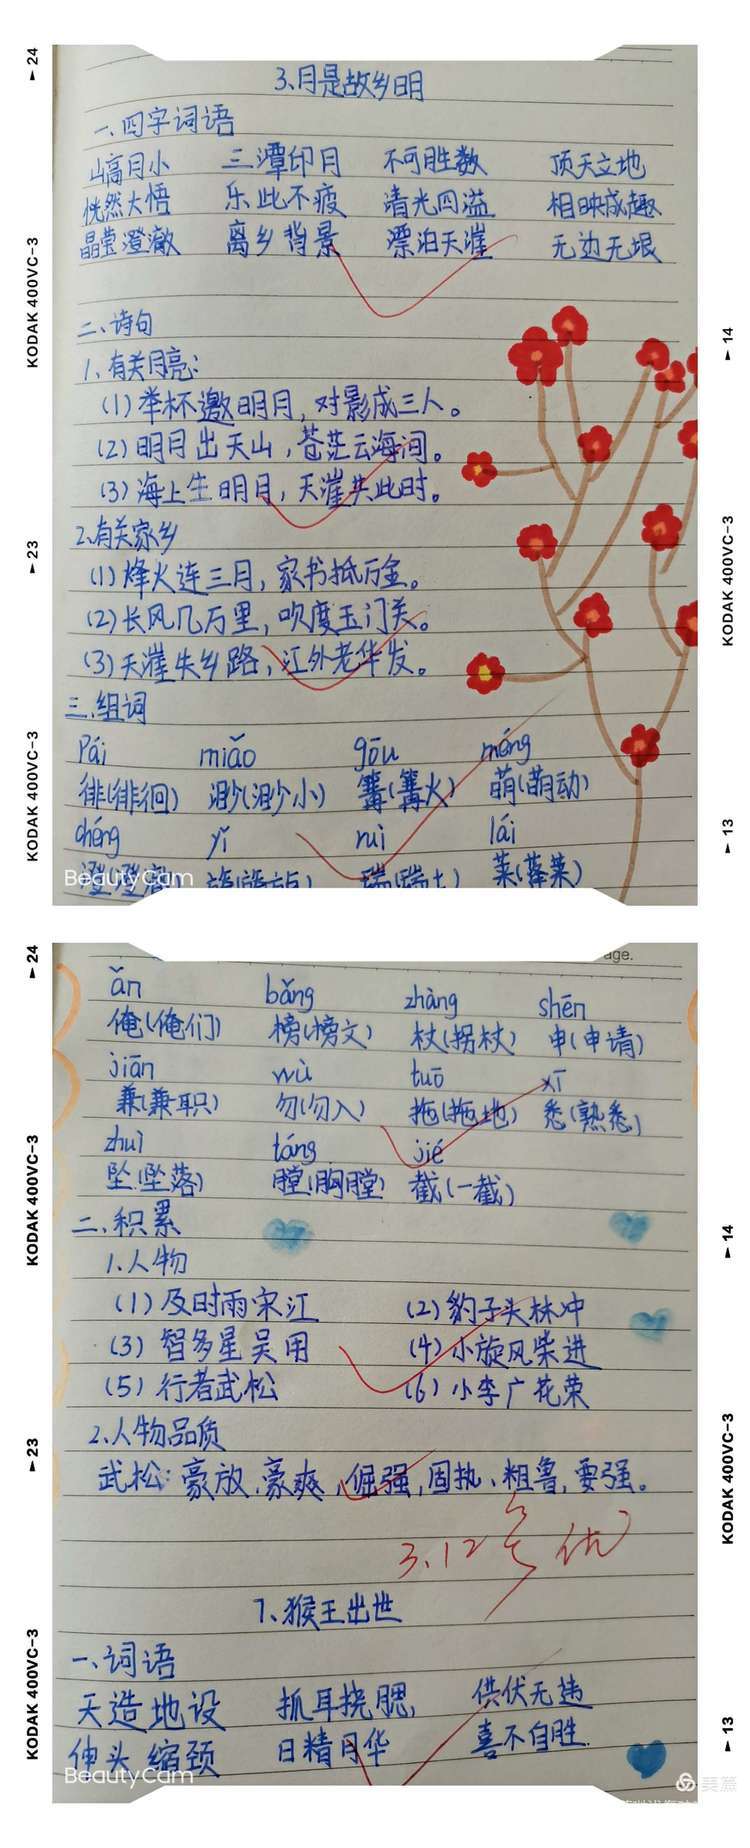 24
KODAK 400VC-3
23
KODAK 400VC-3
14
KODAK 400VC-3
13
3.月是故乡明
一、四字词语
山高月小 三潭印月 不可胜数 顶天立地
恍然大悟 乐此不疲 清光四溢 相映成趣
晶莹澄澈 离乡背景 漂泊天涯 无边无垠
二、诗句
1、有关月亮:
(1)举杯邀明月,对影成三人。
(2)明月出天山,苍茫云海间。
(3)海上生明月,天涯共此时。
2、有关家乡
(1)烽火连三月,家书抵万金。
(2)长风几万里,吹度玉门关。
(3)天涯失乡路,江外老华发。
三、组词
Pái miǎo gōu méng
徘(徘徊) 渺(渺小) 篝(篝火) 萌(萌动)
chéng yǐ ruì lái
澄(澄澈) 旖(旖旎) 瑞(瑞士) 莱(蓬莱)
BeautyCam
24
KODAK 400VC-3
23
KODAK 400VC-3
14
KODAK 400VC-3
13
age.
ǎn bǎng zhàng shēn
俺(俺们) 榜(榜文) 杖(拐杖) 申(申请)
jiān wù tuō xī
兼(兼职) 勿(勿入) 拖(拖地) 悉(熟悉)
zhuì táng jié
坠(坠落) 膛(胸膛) 截(一截)
二、积累
1.人物
(1)及时雨宋江 (2)豹子头林冲
(3)智多星吴用 (4)小旋风柴进
(5)行者武松 (6)小李广花荣
2.人物品质
武松:豪放、豪爽、倔强,固执、粗鲁,要强。
3.12 优
7、猴王出世
一、词语
天造地设 抓耳挠腮, 供伏无违
伸头缩颈 日精月华 喜不自胜.
BeautyCam
美篇